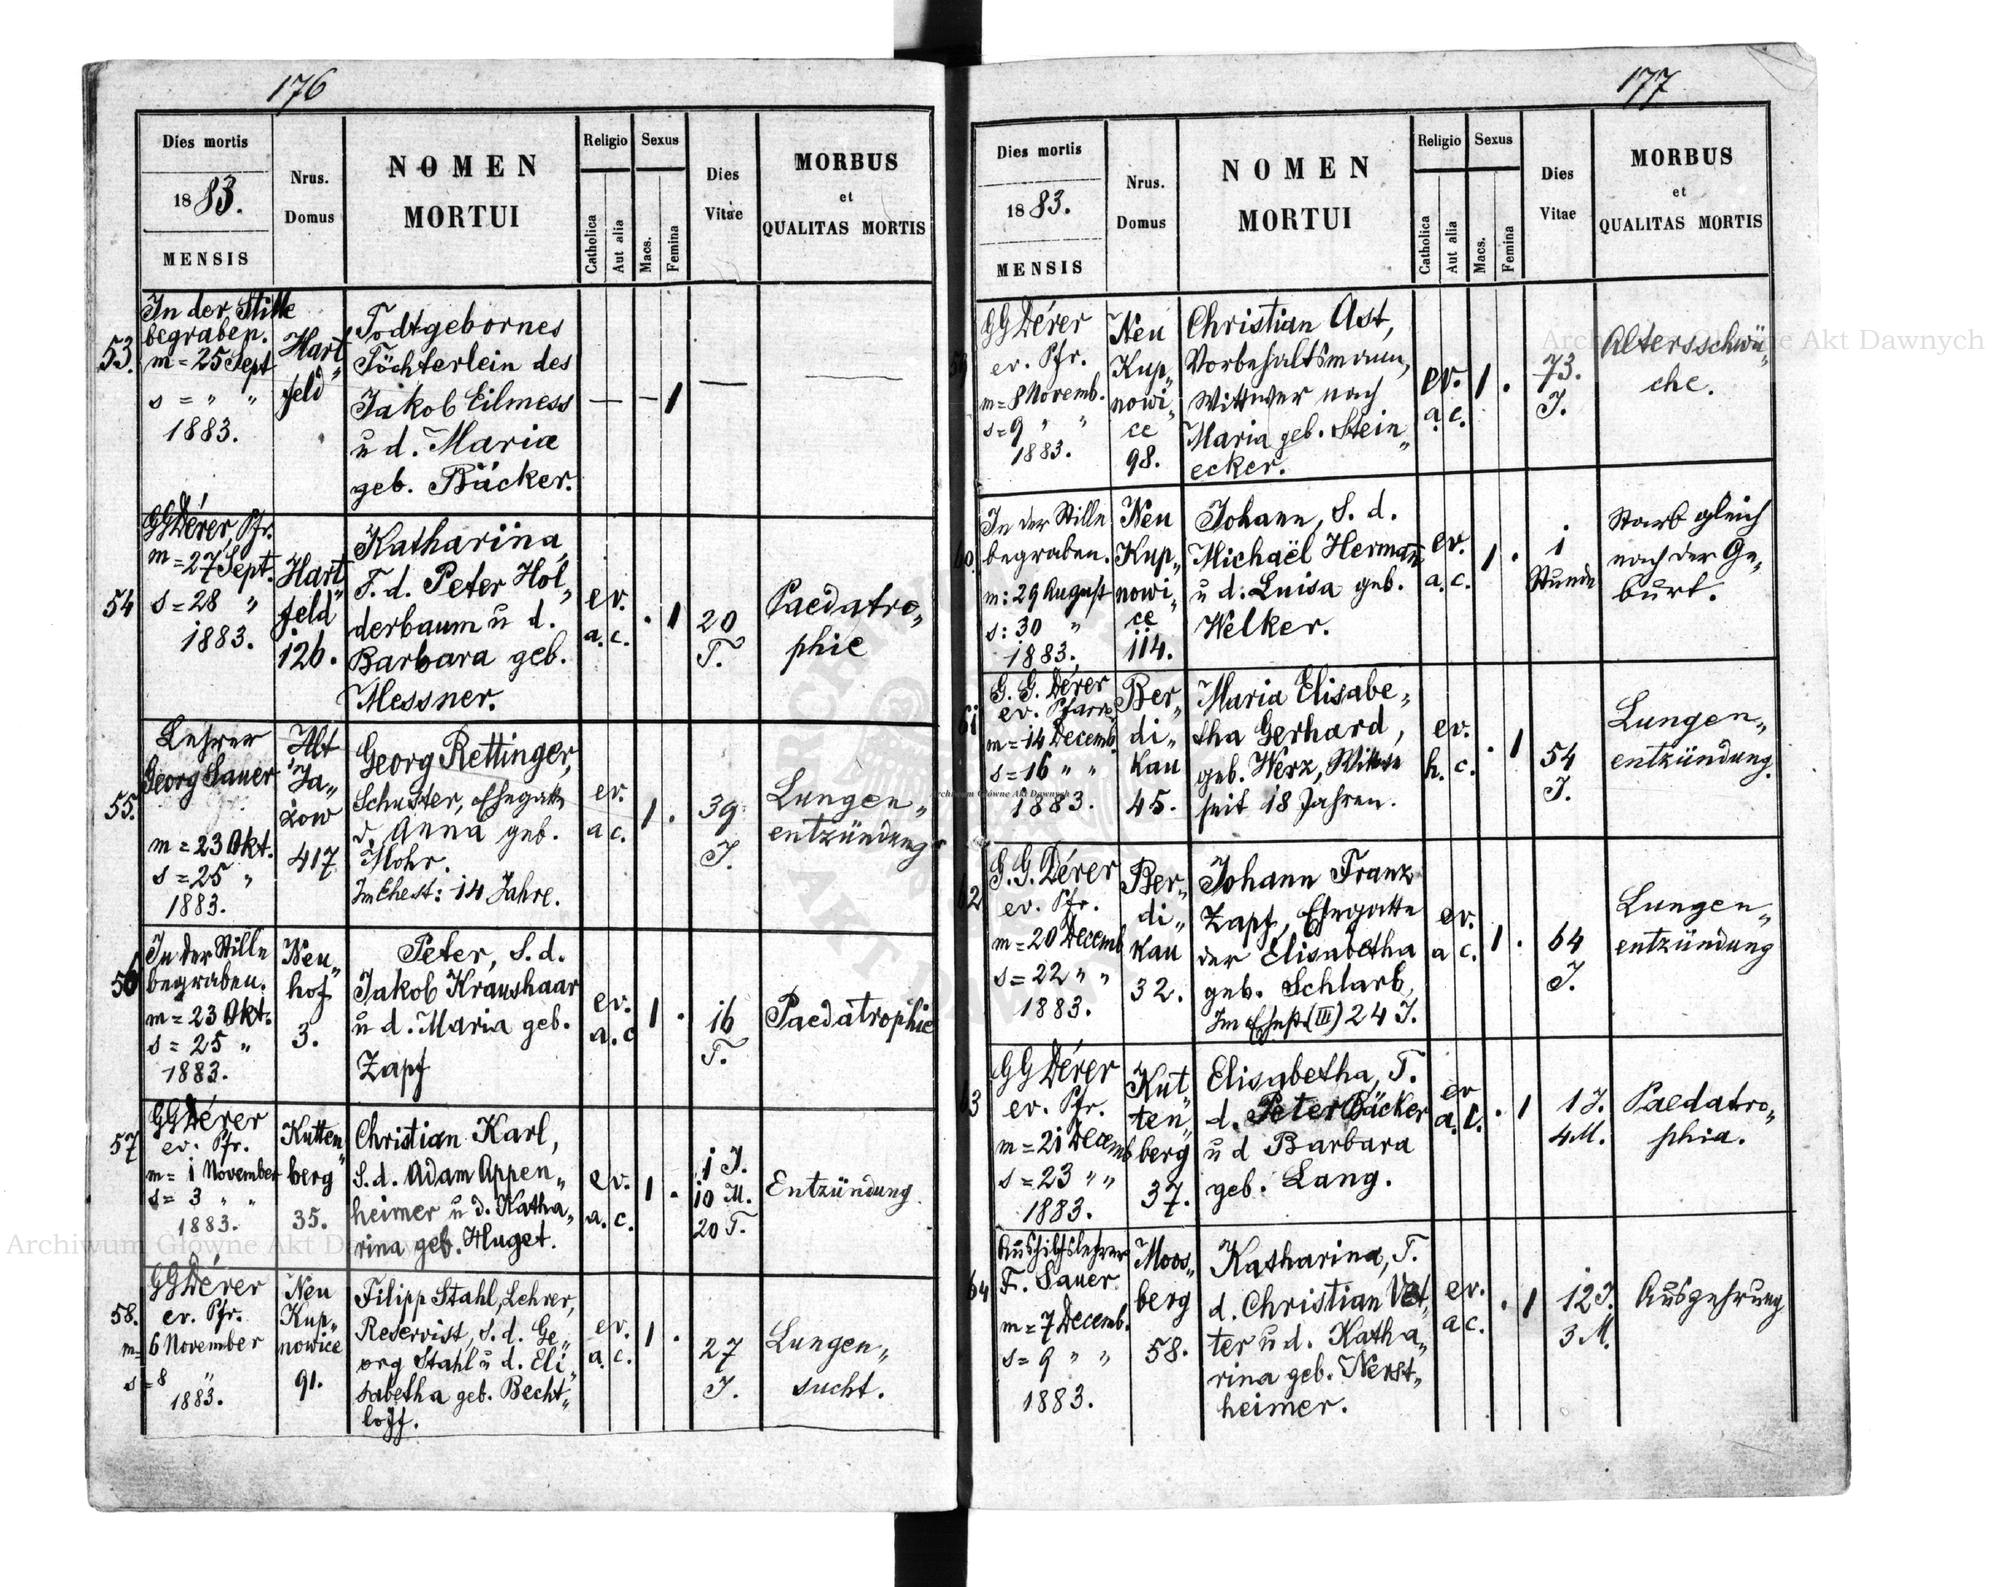 176
Dies mortis
1883.
MENSIS
Nrus.
Domus
NOMEN
MORTUI
Religio
Catholica
Aut alia
Sexus
Macs.
Femina
Dies
Vitae
MORBUS
et
QUALITAS MORTIS
53.
In der Stille
begraben.
m = 25 Sept
s = " "
1883.
Hart„
feld
Todtgebornes
Töchterlein des
Jakob Eilmess
u d. Maria
geb. Bäcker.
— — 1
—
—
54
GGDérer, Pfr.
m = 27 Sept.
s = 28 "
1883.
Hart„
feld
126.
Katharina,
T. d. Peter Hol„
derbaum u d.
Barbara geb.
Messner.
ev.
a. c.
. 1
20
T.
Paedatro„
phie
55.
Lehrer
Georg Sauer
m = 23 Okt.
s = 25 "
1883.
Alt
Ja„
zow
417
Georg Rettinger,
Schuster, Ehegatte
d. Anna geb.
Mohr.
Im Ehest: 14 Jahre.
ev.
a c.
1 .
39
J.
Lungen„
entzündung
56
In der Stille
begraben.
m = 23 Okt.
s = 25 "
1883.
Neu„
hof
3.
Peter, S. d.
Jakob Kraushaar
u d. Maria geb.
Zapf
ev.
a. c
1 .
16
T.
Paedatrophie
57
GGDérer
ev. Pfr.
m = 1 November
s = 3 " "
1883.
Kutten„
berg
35.
Christian Karl,
S. d. Adam Appen„
heimer u d. Katha„
rina geb. Huget.
ev.
a. c.
1 .
1 J.
10 M.
20 T.
Entzündung
58.
GGDérer
ev. Pfr.
m = 6 November
s = 8 "
1883.
Neu
Kup„
nowice
91.
Filipp Stahl, Lehrer,
Reservist, S. d. Ge„
org Stahl u d. Eli„
sabetha geb. Becht„
loff.
ev.
a. c.
1 .
27
J.
Lungen„
sucht.
177
Dies mortis
1883.
MENSIS
Nrus.
Domus
NOMEN
MORTUI
Religio
Catholica
Aut alia
Sexus
Macs.
Femina
Dies
Vitae
MORBUS
et
QUALITAS MORTIS
59
GGDérer
ev. Pfr.
m = 8 Novemb.
s = 9 " "
1883.
Neu
Kup„
nowi„
ce
98.
Christian Ast,
Vorbehaltsmann,
Wittwer nach
Maria geb. Stein„
ecker.
ev.
a. c.
1 .
73.
J.
Altersschwä„
che.
60.
In der Stille
begraben.
m: 29 August
s: 30 "
1883.
Neu
Kup„
nowi„
ce
114.
Johann, S. d.
Michaël Hermann
u d: Luisa geb.
Welker.
ev.
a. c.
1 .
1
Stunde
Starb gleich
nach der Ge„
burt.
61
G. G. Dérer
ev. Pfarr.
m = 14 Decemb.
s = 16 " "
1883.
Ber„
di„
kau
45.
Maria Elisabe„
tha Gerhard,
geb. Werz, Wittwe
seit 18 Jahren.
ev.
h. c.
. 1
54
J.
Lungen„
entzündung.
62
G. G. Dérer
ev. Pfr.
m = 20 Decemb
s = 22 " "
1883.
Ber„
di„
kau
32.
Johann Franz
Zapf, Ehegatte
der Elisabetha
geb. Schlarb,
Im Ehest. (III) 24 J.
ev.
a c.
1 .
64
J.
Lungen„
entzündung
63
GGDérer
ev. Pfr.
m = 21 Decemb
s = 23 " "
1883.
Kut„
ten„
berg
37.
Elisabetha, T.
d. Peter Bäcker
u d Barbara
geb. Lang.
ev
a. c.
. 1
1 J.
4 M.
Paedatro„
phia.
64
Aushilfslehrer
F. Sauer.
m = 7 Decemb.
s = 9 " "
1883.
Moos„
berg
58.
Katharina, T.
d. Christian Vet„
ter u d. Katha„
rina geb. Nerst„
heimer.
ev.
a c.
. 1
12 J.
3 M.
Auszehrung
Archiwum Główne Akt Dawnych
Archiwum Główne Akt Dawnych
Archiwum Główne Akt Dawnych